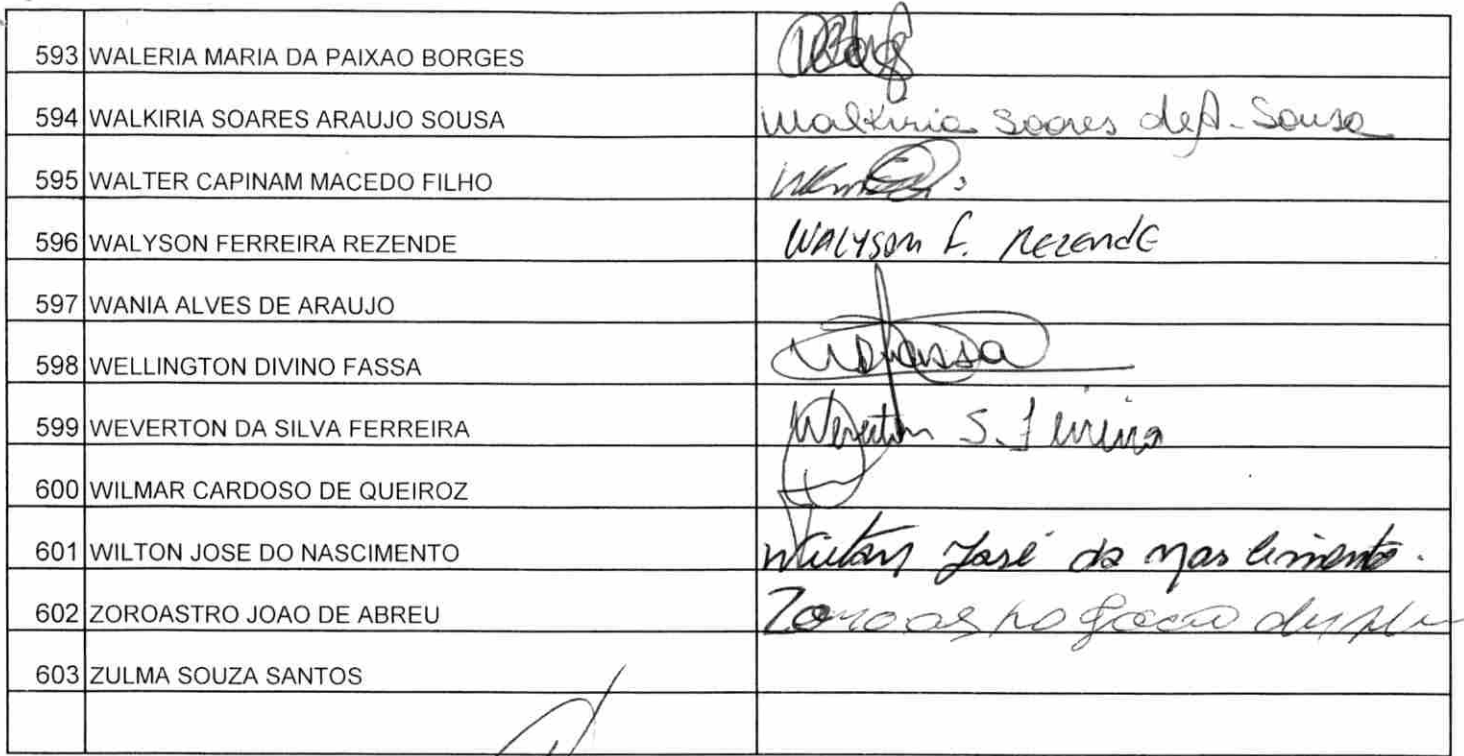 593 WALERIA MARIA DA PAIXAO BORGES
594 WALKIRIA SOARES ARAUJO SOUSA Walkiria Soares de A. Sousa
595 WALTER CAPINAM MACEDO FILHO
596 WALYSON FERREIRA REZENDE WALYSON F. REZENDE
597 WANIA ALVES DE ARAUJO
598 WELLINGTON DIVINO FASSA
599 WEVERTON DA SILVA FERREIRA Weverton S. Ferreira
600 WILMAR CARDOSO DE QUEIROZ
601 WILTON JOSE DO NASCIMENTO Wilton José do Nascimento.
602 ZOROASTRO JOAO DE ABREU Zoroastro João de
603 ZULMA SOUZA SANTOS